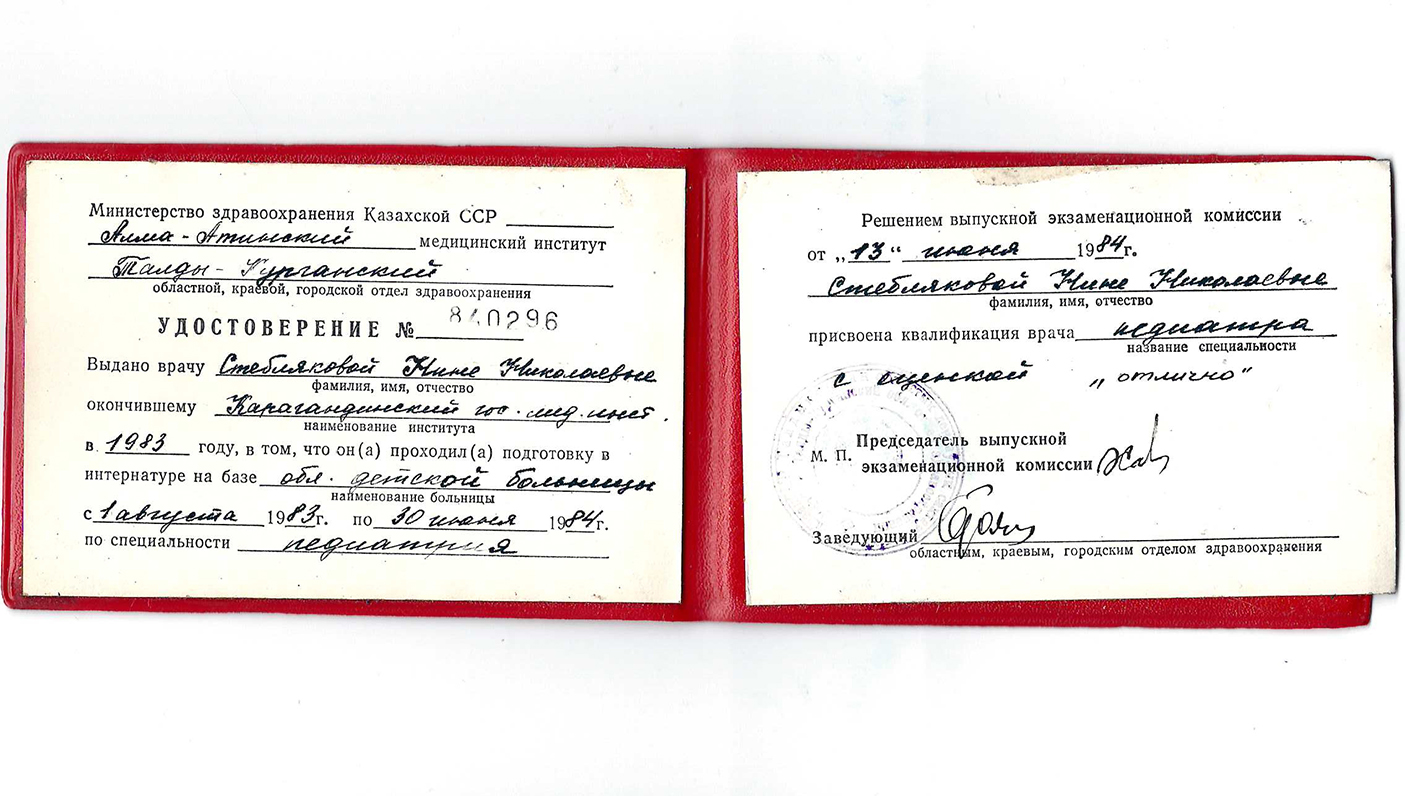 Министерство здравоохранения Казахской ССР
Алма-Атинский медицинский институт
Талды-Курганский
областной, краевой, городской отдел здравоохранения
УДОСТОВЕРЕНИЕ № 840296
Выдано врачу Стебляковой Нине Николаевне
фамилия, имя, отчество
окончившему Карагандинский гос. мед. инст.
наименование института
в 1983 году, в том, что он(а) проходил(а) подготовку в
интернатуре на базе обл. детской больницы
наименование больницы
с 1 августа 1983г. по 30 июня 1984г.
по специальности педиатрия
Решением выпускной экзаменационной комиссии
от „13“ июня 1984г.
Стебляковой Нине Николаевне
фамилия, имя, отчество
присвоена квалификация врача педиатра
название специальности
с оценкой „отлично"
Председатель выпускной
М. П.
экзаменационной комиссии
Заведующий
областным, краевым, городским отделом здравоохранения